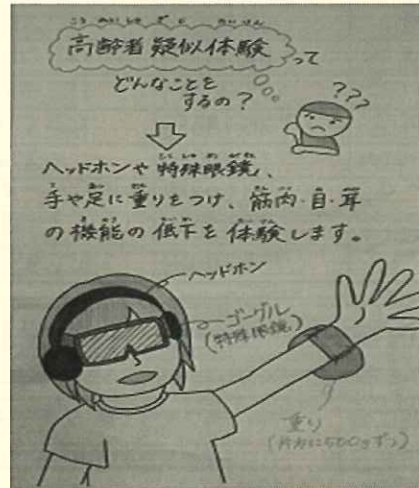 高齢者疑似体験って
どんなことを
するの？
???
ヘッドホンや特殊眼鏡、
手や足に重りをつけ、筋肉・目・耳
の機能の低下を体験します。
ヘッドホン
ゴーグル
(特殊眼鏡)
重り
(片方に500gずつ)